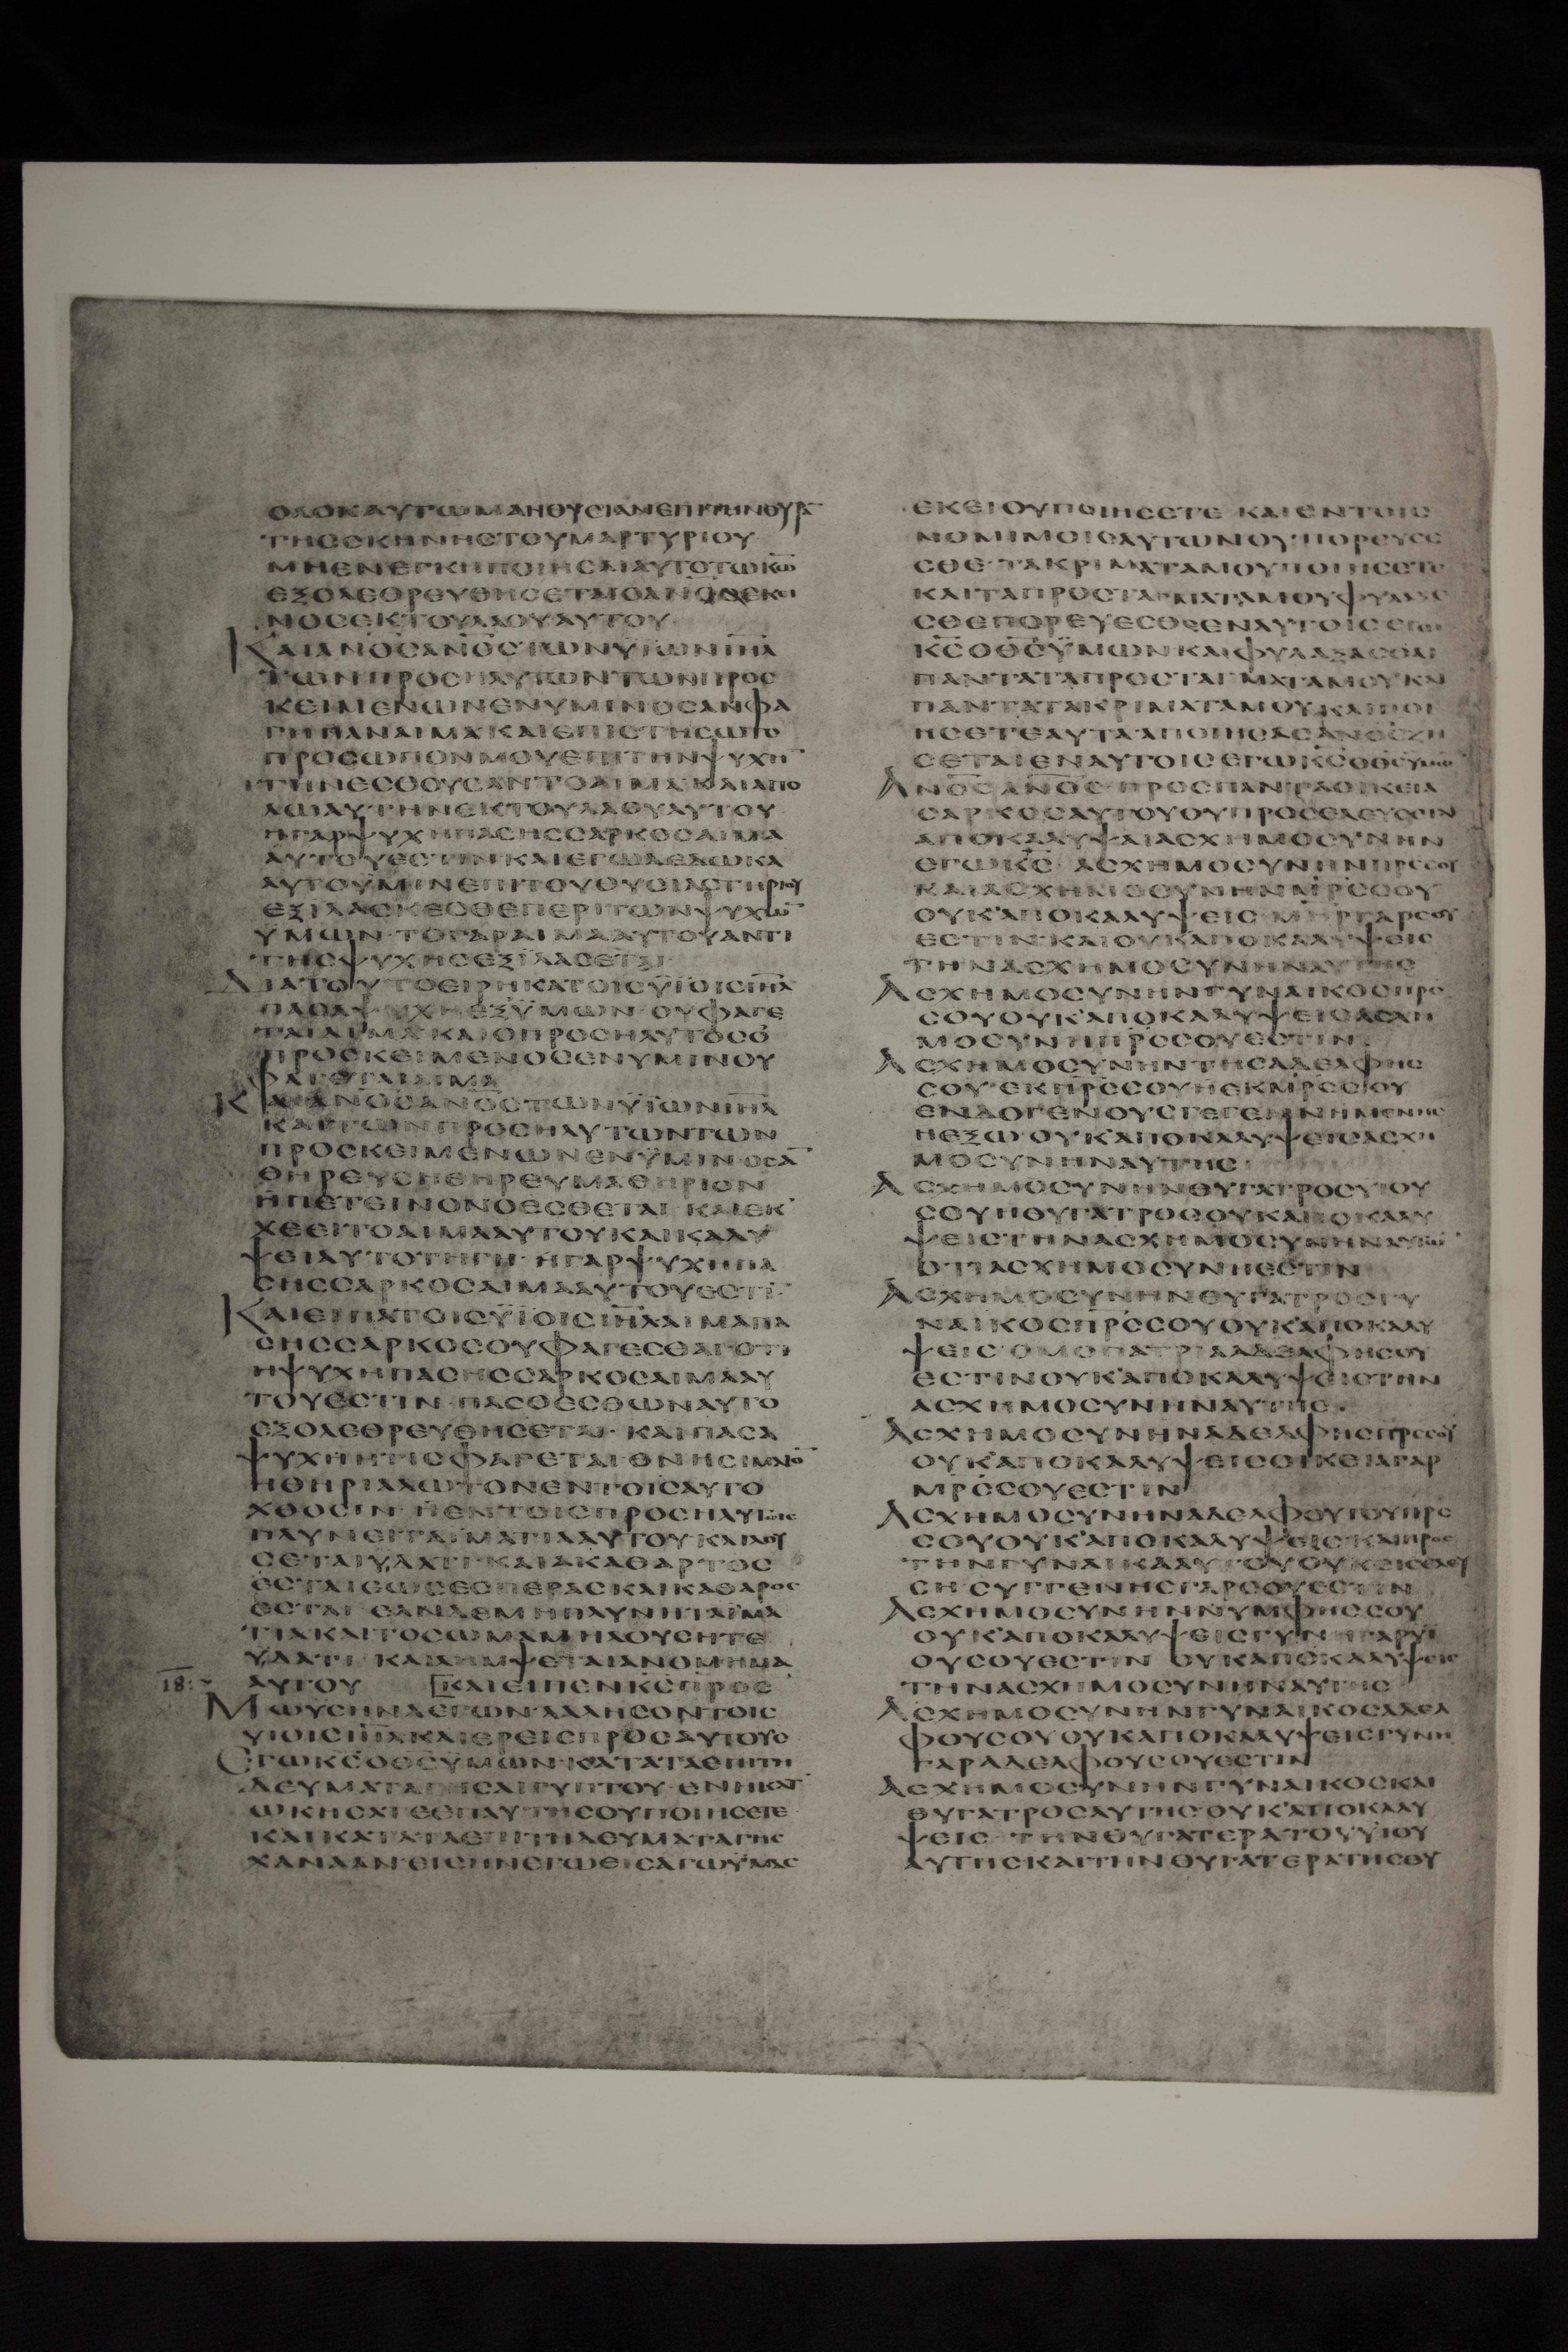 ΟΛΟΚΑΥΤΩΜΑΗΘΥΣΙΑΝΕΠΙΤΗΝΘΥΡΑ̅
ΤΗΣΣΚΗΝΗΣΤΟΥΜΑΡΤΥΡΙΟΥ
ΜΗΕΝΕΓΚΗΠΟΙΗΣΑΙΑΥΤΟΤΩΚ̅Ω̅
ΕΞΟΛΕΘΡΕΥΘΗΣΕΤΑΙΟΑΝ̅Ο̅Σ̅ΕΚΕΙ
ΝΟΣΕΚΤΟΥΛΑΟΥΑΥΤΟΥ
ΚΑΙΑΝ̅Ο̅Σ̅ΑΝ̅Ο̅Σ̅ΤΩΝΫΙΩΝΙ̅Η̅Λ̅
ΤΩΝΠΡΟΣΗΛΥΤΩΝΤΩΝΠΡΟΣ
ΚΕΙΜΕΝΩΝΕΝΥΜΙΝΟΣΑΝΦΑ
ΓΗΠΑΝΑΙΜΑΚΑΙΕΠΙΣΤΗΣΩΤΟ
ΠΡΟΣΩΠΟΝΜΟΥΕΠΙΤΗΝΨΥΧΗ̅
ΤΗΝΕΣΘΟΥΣΑΝΤΟΑΙΜΑΚΑΙΑΠΟ
ΛΩΑΥΤΗΝΕΚΤΟΥΛΑΟΥΑΥΤΟΥ
ΗΓΑΡΨΥΧΗΠΑΣΗΣΣΑΡΚΟΣΑΙΜΑ
ΑΥΤΟΥΕΣΤΙΝΚΑΙΕΓΩΔΕΔΩΚΑ
ΑΥΤΟΫΜΙΝΕΠΙΤΟΥΘΥΣΙΑΣΤΗΡΙΟΥ
ΕΞΙΛΑΣΚΕΣΘΕΠΕΡΙΤΩΝΨΥΧΩ̅
ΫΜΩΝ·ΤΟΓΑΡΑΙΜΑΑΥΤΟΥΑΝΤΙ
ΤΗΣΨΥΧΗΣΕΞΙΛΑΣΕΤΑΙ
ΔΙΑΤΟΥΤΟΕΙΡΗΚΑΤΟΙΣΫΙΟΙΣΙ̅Η̅Λ̅
ΠΑΣΑΨΥΧΗΕΞΫΜΩΝ·ΟΥΦΑΓΕ
ΤΑΙΑΙΜΑΚΑΙΟΠΡΟΣΗΛΥΤΟΣΟ
ΠΡΟΣΚΕΙΜΕΝΟΣΕΝΥΜΙΝΟΥ
ΦΑΓΕΤΑΙΑΙΜΑ
ΚΑΙΑΝ̅Ο̅Σ̅ΑΝ̅Ο̅Σ̅ΤΩΝΫΙΩΝΙ̅Η̅Λ̅
ΚΑΙΤΩΝΠΡΟΣΗΛΥΤΩΝΤΩΝ
ΠΡΟΣΚΕΙΜΕΝΩΝΕΝΫΜΙΝ·ΟΣΑ̅
ΘΗΡΕΥΣΠΘΗΡΕΥΜΑΘΗΡΙΟΝ
ΗΠΕΤΕΙΝΟΝΟΕΣΘΕΤΑΙ·ΚΑΙΕΚ
ΧΕΕΙΤΟΑΙΜΑΑΥΤΟΥΚΑΙΚΑΛΥ
ΨΕΙΑΥΤΟΤΗΓΗ·ΗΓΑΡΨΥΧΗΠΑ
ΣΗΣΣΑΡΚΟΣΑΙΜΑΑΥΤΟΥΕΣΤΙ̅
ΚΑΙΕΙΠΑΤΟΙΣΫΙΟΙΣΙ̅Η̅Λ̅ΑΙΜΑΠΑ
ΣΗΣΣΑΡΚΟΣΟΥΦΑΓΕΣΘΑΙΟΤΙ
ΗΨΥΧΗΠΑΣΗΣΣΑΡΚΟΣΑΙΜΑΑΥ
ΤΟΥΕΣΤΙΝ·ΠΑΣΟΕΣΘΩΝΑΥΤΟ
ΕΞΟΛΕΘΡΕΥΘΗΣΕΤΑΙ·ΚΑΙΠΑΣΑ
ΨΥΧΗΗΤΙΣΦΑΓΕΤΑΙΘΝΗΣΙΜΑΙΟ̅
ΗΘΗΡΙΑΛΩΤΟΝΕΝΤΟΙΣΑΥΤΟ
ΧΘΟΣΙΝ·ΗΕΝΤΟΙΣΠΡΟΣΗΛΥΤΟΙΣ
ΠΛΥΝΕΙΤΑΪΜΑΤΙΑΑΥΤΟΥΚΑΙΛΟΥ
ΣΕΤΑΙΥΔΑΤΙ·ΚΑΙΑΚΑΘΑΡΤΟΣ
ΕΣΤΑΙΕΩΣΕΣΠΕΡΑΣΚΑΙΚΑΘΑΡΟΣ
ΕΣΤΑΙ·ΕΑΝΔΕΜΗΠΛΥΝΗΤΑΪΜΑ
ΤΙΑΚΑΙΤΟΣΩΜΑΜΗΛΟΥΣΗΤΕ
ΥΔΑΤΙ ΚΑΙΛΗΜΨΕΤΑΙΑΝΟΜΗΜΑ
18: ΑΥΤΟΥ [ΚΑΙΕΙΠΕΝΚ̅Σ̅ΠΡΟΣ
ΜΩΥΣΗΝΛΕΓΩΝ·ΛΑΛΗΣΟΝΤΟΙΣ
ΥΙΟΙΣΙ̅Η̅Λ̅ΚΑΙΕΡΕΙΣΠΡΟΣΑΥΤΟΥΣ
ΕΓΩΚ̅Σ̅ΟΘ̅Σ̅ΫΜΩΝ·ΚΑΤΑΤΑΕΠΙΤΗ
ΔΕΥΜΑΤΑΓΗΣΑΙΓΥΠΤΟΥ·ΕΝΗΚΑΤ
ΩΚΗΣΑΤΕΕΠΑΥΤΗΣΟΥΠΟΙΗΣΕΤΕ
ΚΑΙΚΑΤΑΤΑΕΠΙΤΗΔΕΥΜΑΤΑΓΗΣ
ΧΑΝΑΑΝ·ΕΙΣΗΝΕΓΩΕΙΣΑΓΩΫΜΑΣ
ΕΚΕΙΟΥΠΟΙΗΣΕΤΕ·ΚΑΙΕΝΤΟΙΣ
ΝΟΜΙΜΟΙΣΑΥΤΩΝΟΥ·ΠΟΡΕΥΣΕ
ΣΘΕ·ΤΑΚΡΙΜΑΤΑΜΟΥΠΟΙΗΣΕΤΕ
ΚΑΙΤΑΠΡΟΣΤΑΓΜΑΤΑΜΟΥΦΥΛΑΞΕ
ΣΘΕΠΟΡΕΥΕΣΘΕΕΝΑΥΤΟΙΣΕΓΩ
Κ̅Σ̅ΟΘ̅Σ̅ΫΜΩΝΚΑΙΦΥΛΑΞΑΣΘΑΙ
ΠΑΝΤΑΤΑΠΡΟΣΤΑΓΜΑΤΑΜΟΥΚΑΙ
ΠΑΝΤΑΤΑΚΡΙΜΑΤΑΜΟΥΚΑΙΠΟΙ
ΗΣΕΤΕΑΥΤΑΑΠΟΙΗΣΑΣΑΝ̅Ο̅Σ̅ΖΗ
ΣΕΤΑΙΕΝΑΥΤΟΙΣΕΓΩΚ̅Σ̅ΟΘ̅Σ̅ΥΜΩ̅
ΑΝ̅Ο̅Σ̅ΑΝ̅Ο̅Σ̅·ΠΡΟΣΠΑΝΤΑΟΙΚΕΙΑ
ΣΑΡΚΟΣΑΥΤΟΥΟΥΠΡΟΣΕΛΕΥΣΕΙΝ
ΑΠΟΚΑΛΥΨΑΙΑΣΧΗΜΟΣΥΝΗΝ
ΕΓΩΚ̅Σ̅·ΑΣΧΗΜΟΣΥΝΗΝΠ̅Ρ̅Σ̅ΣΟΥ
ΚΑΙΑΣΧΗΜΟΣΥΝΗΝΜ̅Ρ̅Σ̅ΣΟΥ
ΟΥΚΑΠΟΚΑΛΥΨΕΙΣ·Μ̅Η̅Ρ̅ΓΑΡΣΟΥ
ΕΣΤΙΝ·ΚΑΙΟΥΚΑΠΟΚΑΛΥΨΕΙΣ
ΤΗΝΑΣΧΗΜΟΣΥΝΗΝΑΥΤΗΣ
ΑΣΧΗΜΟΣΥΝΗΝΓΥΝΑΙΚΟΣΠ̅Ρ̅Σ̅
ΣΟΥΟΥΚΑΠΟΚΑΛΥΨΕΙΣΑΣΧΗ
ΜΟΣΥΝΗΠ̅Ρ̅Σ̅ΣΟΥΕΣΤΙΝ
ΑΣΧΗΜΟΣΥΝΗΝΤΗΣΑΔΕΛΦΗΣ
ΣΟΥ·ΕΚΠ̅Ρ̅Σ̅ΣΟΥΗΕΚΜ̅Ρ̅Σ̅ΣΟΥ
ΕΝΔΟΓΕΝΟΥΣΓΕΓΕΝΝΗΜΕΝΗΣ
ΗΕΞΩ·ΟΥΚΑΠΟΚΑΛΥΨΕΙΣΑΣΧΗ
ΜΟΣΥΝΗΝΑΥΤΗΣ
ΑΣΧΗΜΟΣΥΝΗΝΘΥΓΑΤΡΟΣΥΙΟΥ
ΣΟΥΗΘΥΓΑΤΡΟΣΣΟΥΚΑΠΟΚΑΛΥ
ΨΕΙΣΤΗΝΑΣΧΗΜΟΣΥΝΗΝΑΥΤΩ̅
ΟΤΙΑΣΧΗΜΟΣΥΝΗΕΣΤΙΝ
ΑΣΧΗΜΟΣΥΝΗΝΘΥΓΑΤΡΟΣΓΥ
ΝΑΙΚΟΣΠ̅Ρ̅Σ̅ΣΟΥΟΥΚΑΠΟΚΑΛΥ
ΨΕΙΣ·ΟΜΟΠΑΤΡΙΑΑΔΕΛΦΗΣΟΥ
ΕΣΤΙΝΟΥΚΑΠΟΚΑΛΥΨΕΙΣΤΗΝ
ΑΣΧΗΜΟΣΥΝΗΝΑΥΤΗΣ.
ΑΣΧΗΜΟΣΥΝΗΝΑΔΕΛΦΗΣΠ̅Ρ̅Σ̅ΣΟΥ
ΟΥΚΑΠΟΚΑΛΥΨΕΙΣΟΙΚΕΙΑΓΑΡ
Μ̅Ρ̅Σ̅ΣΟΥΕΣΤΙΝ
ΑΣΧΗΜΟΣΥΝΗΝΑΔΕΛΦΟΥΤΟΥΠ̅Ρ̅Σ̅
ΣΟΥΟΥΚΑΠΟΚΑΛΥΨΕΙΣ·ΚΑΙΠΡΟΣ
ΤΗΝΓΥΝΑΙΚΑΑΥΤΟΥΟΥΚΕΙΣΕΛΕΥ
ΣΗ·ΣΥΓΓΕΝΗΣΓΑΡΣΟΥΕΣΤΙΝ
ΑΣΧΗΜΟΣΥΝΗΝΝΥΜΦΗΣΣΟΥ
ΟΥΚΑΠΟΚΑΛΥΨΕΙΣΓΥΝΗΓΑΡΥΙ
ΟΥΣΟΥΕΣΤΙΝ ΟΥΚΑΠΟΚΑΛΥΨΕΙΣ
ΤΗΝΑΣΧΗΜΟΣΥΝΗΝΑΥΤΗΣ
ΑΣΧΗΜΟΣΥΝΗΝΓΥΝΑΙΚΟΣΑΔΕΛ
ΦΟΥΣΟΥΟΥΚΑΠΟΚΑΛΥΨΕΙΣΓΥΝΗ
ΓΑΡΑΔΕΛΦΟΥΣΟΥΕΣΤΙΝ
ΑΣΧΗΜΟΣΥΝΗΝΓΥΝΑΙΚΟΣΚΑΙ
ΘΥΓΑΤΡΟΣΑΥΤΗΣΟΥΚΑΠΟΚΑΛΥ
ΨΕΙΣ·ΤΗΝΘΥΓΑΤΕΡΑΤΟΥΥΙΟΥ
ΑΥΤΗΣΚΑΙΤΗΝΘΥΓΑΤΕΡΑΤΗΣΘΥ